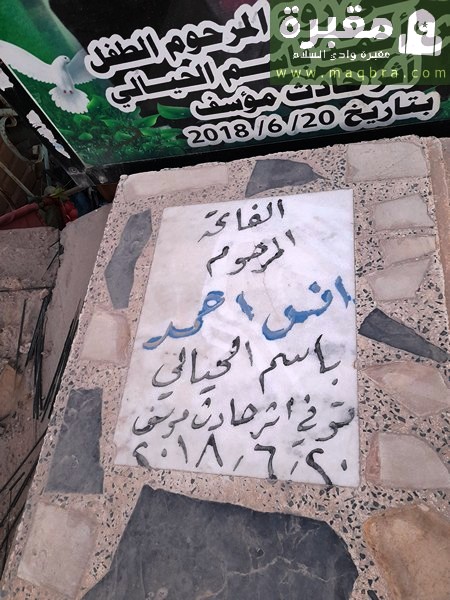 مقبرة
مقبرة وادي السلام
www.maqbra.com
المرحوم الطفل
م الحيالي
حادث مؤسف
بتاريخ 2018/6/20
الفاتحة
المرحوم
احمد
باسم الحيالي
توفي اثر حادث موسف
٢٠-٦-٢٠١٨